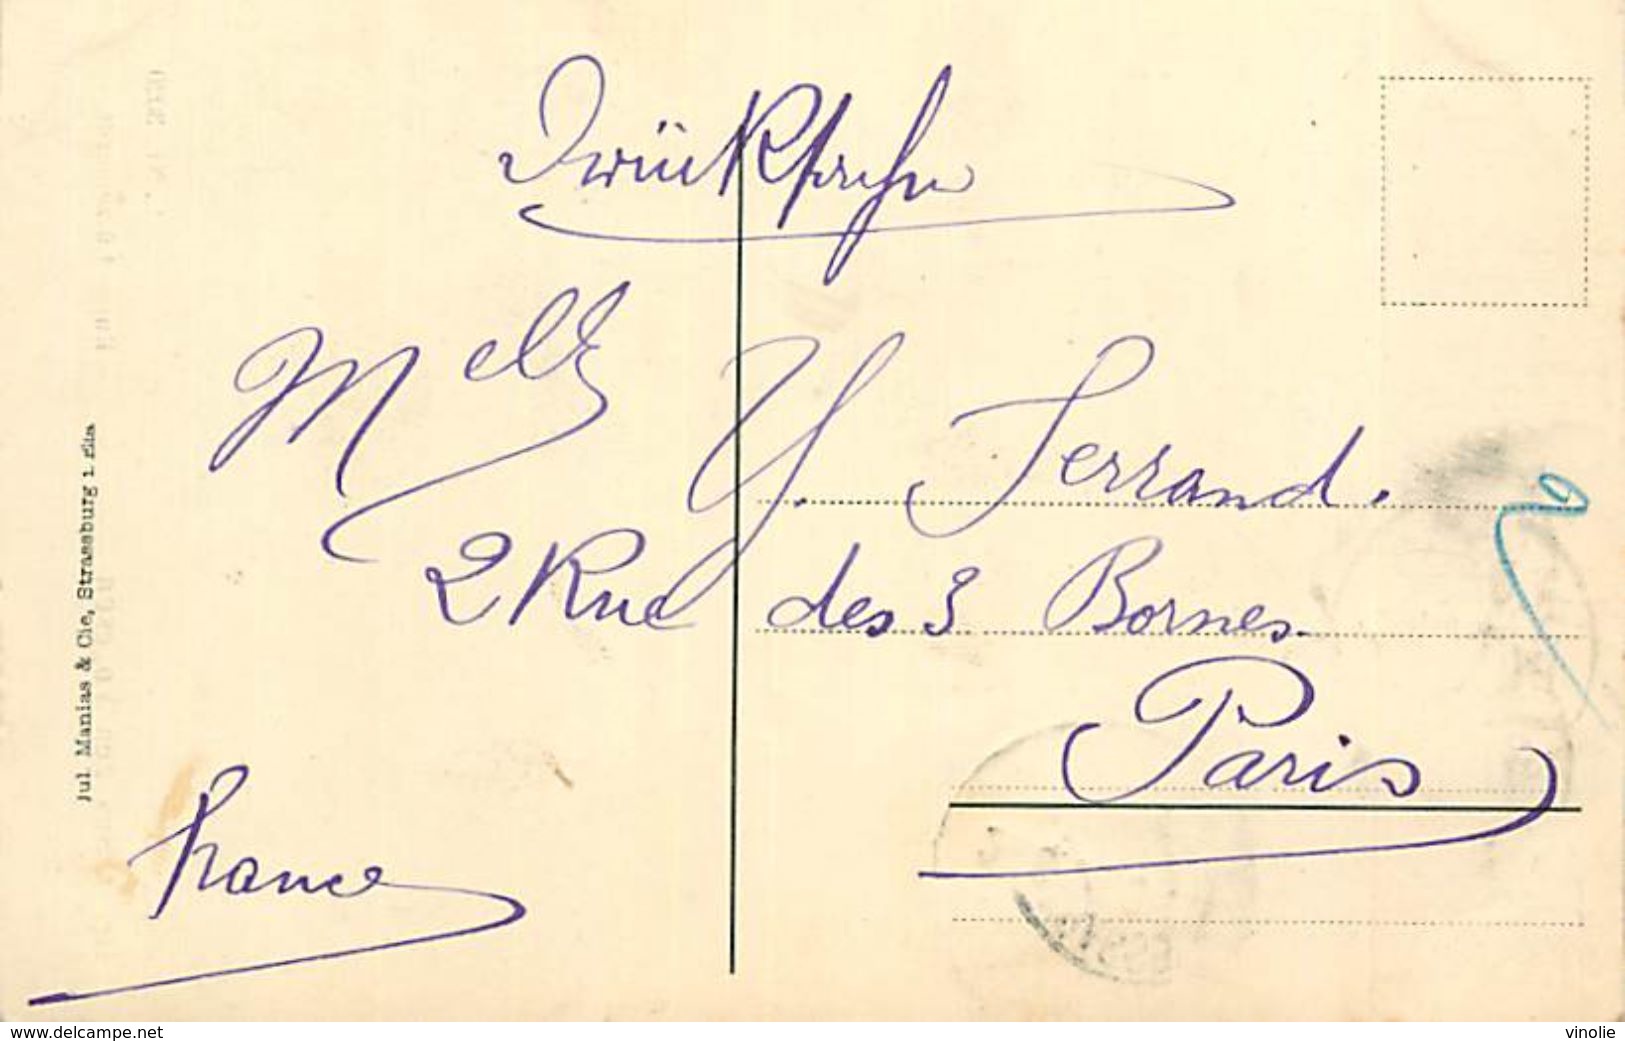 Drücksache
Melle Y. Serrand.
2 Rue des 3 Bornes.
Paris
France
Jul. Manias & Cie, Strassburg i. Els.
www.delcampe.net
vinolie